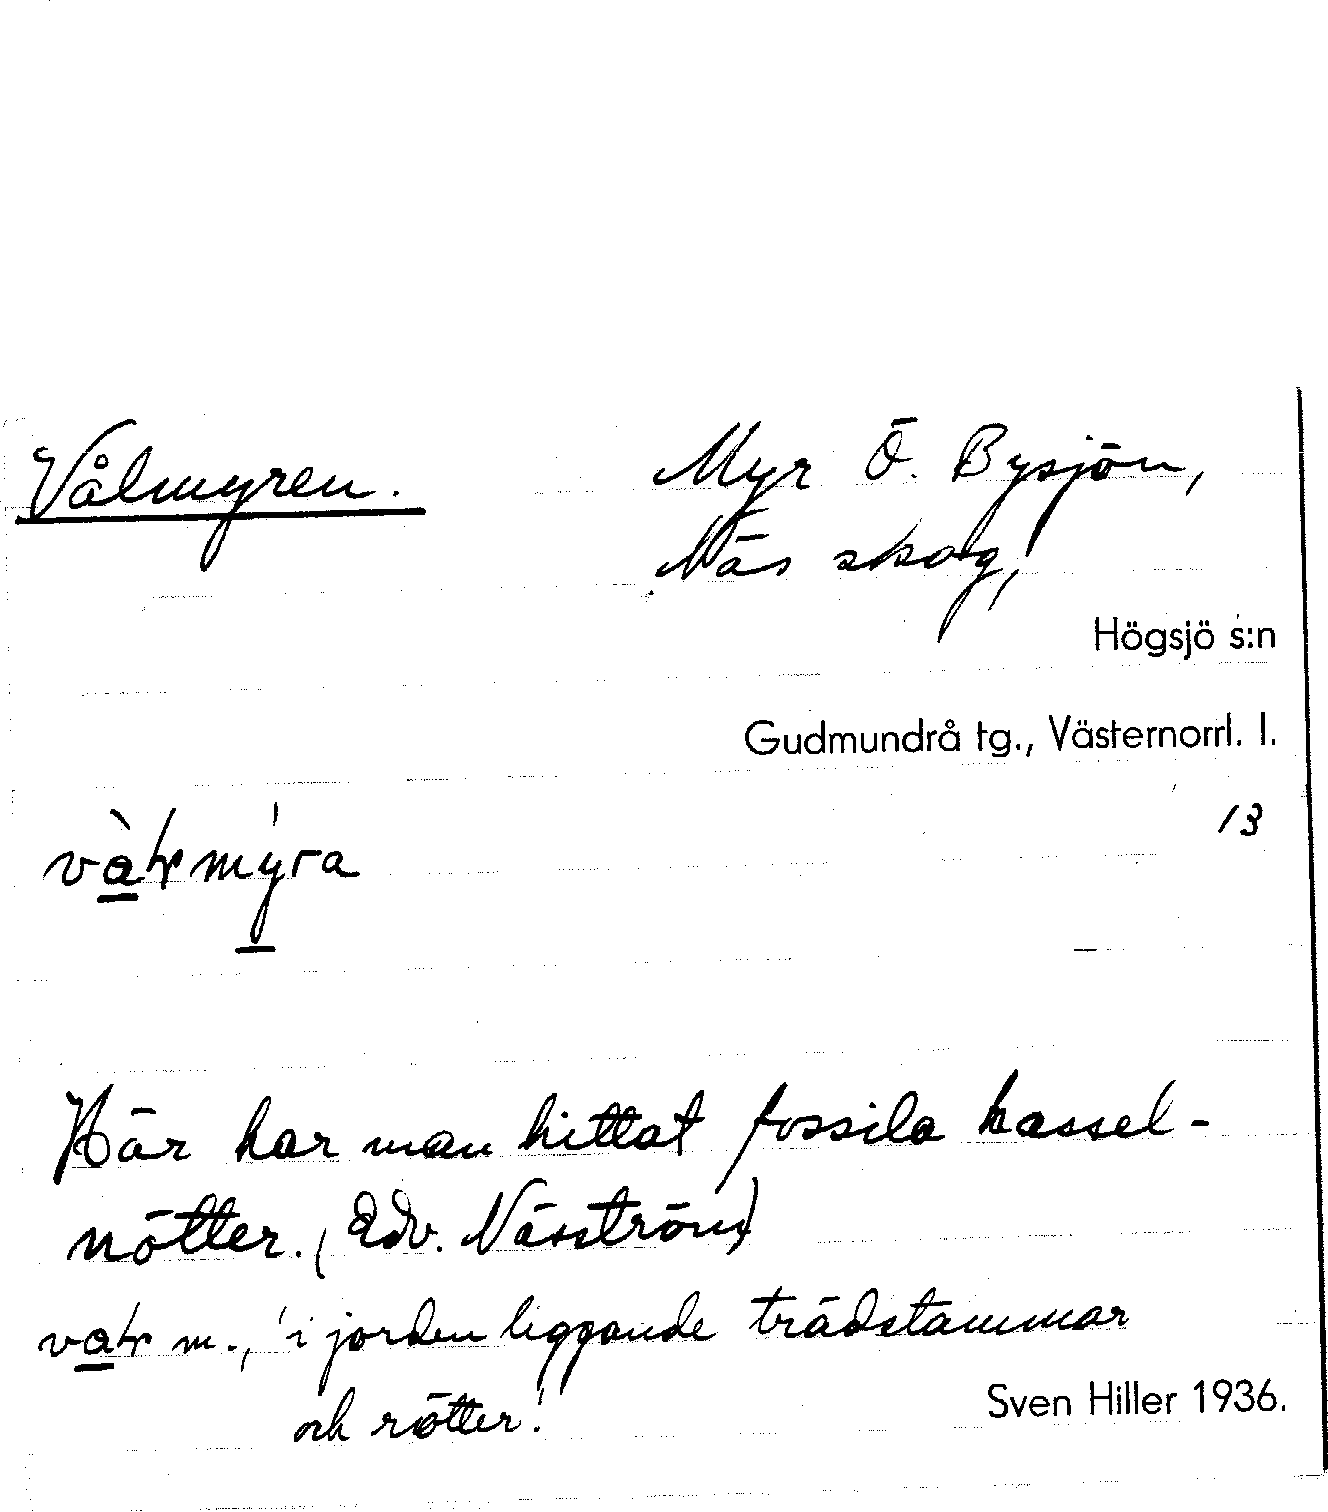 Vålmyren. Myr Ö. Bysjön,
Näs skog,
Högsjö s:n
Gudmundrå tg., Västernorrl. l.
13
Här har man hittat fossila hassel-
nötter. (Edv. Näsström)
m., 'i jorden liggande trädstammar
och rötter.'
Sven Hiller 1936.